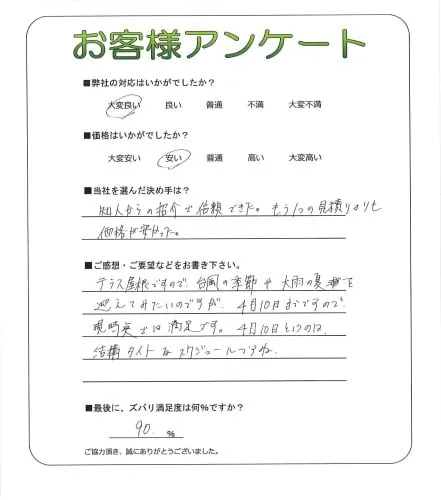 お客様アンケート
■弊社の対応はいかがでしたか？
大変良い 良い 普通 不満 大変不満
■価格はいかがでしたか？
大変安い 安い 普通 高い 大変高い
■当社を選んだ決め手は？
知人からの紹介で信頼できた。もう1つの見積りよりも
価格が安かった。
■ご感想・ご要望などをお書き下さい。
テラス屋根ですので、台風の季節や大雨の夏を
迎えてみたいのですが、4月10日までですので、
現時点では満足です。4月10日というのは、
結構タイトなスケジュールですね。
■最後に、ズバリ満足度は何％ですか？
90. ％
ご協力頂き、誠にありがとうございました。